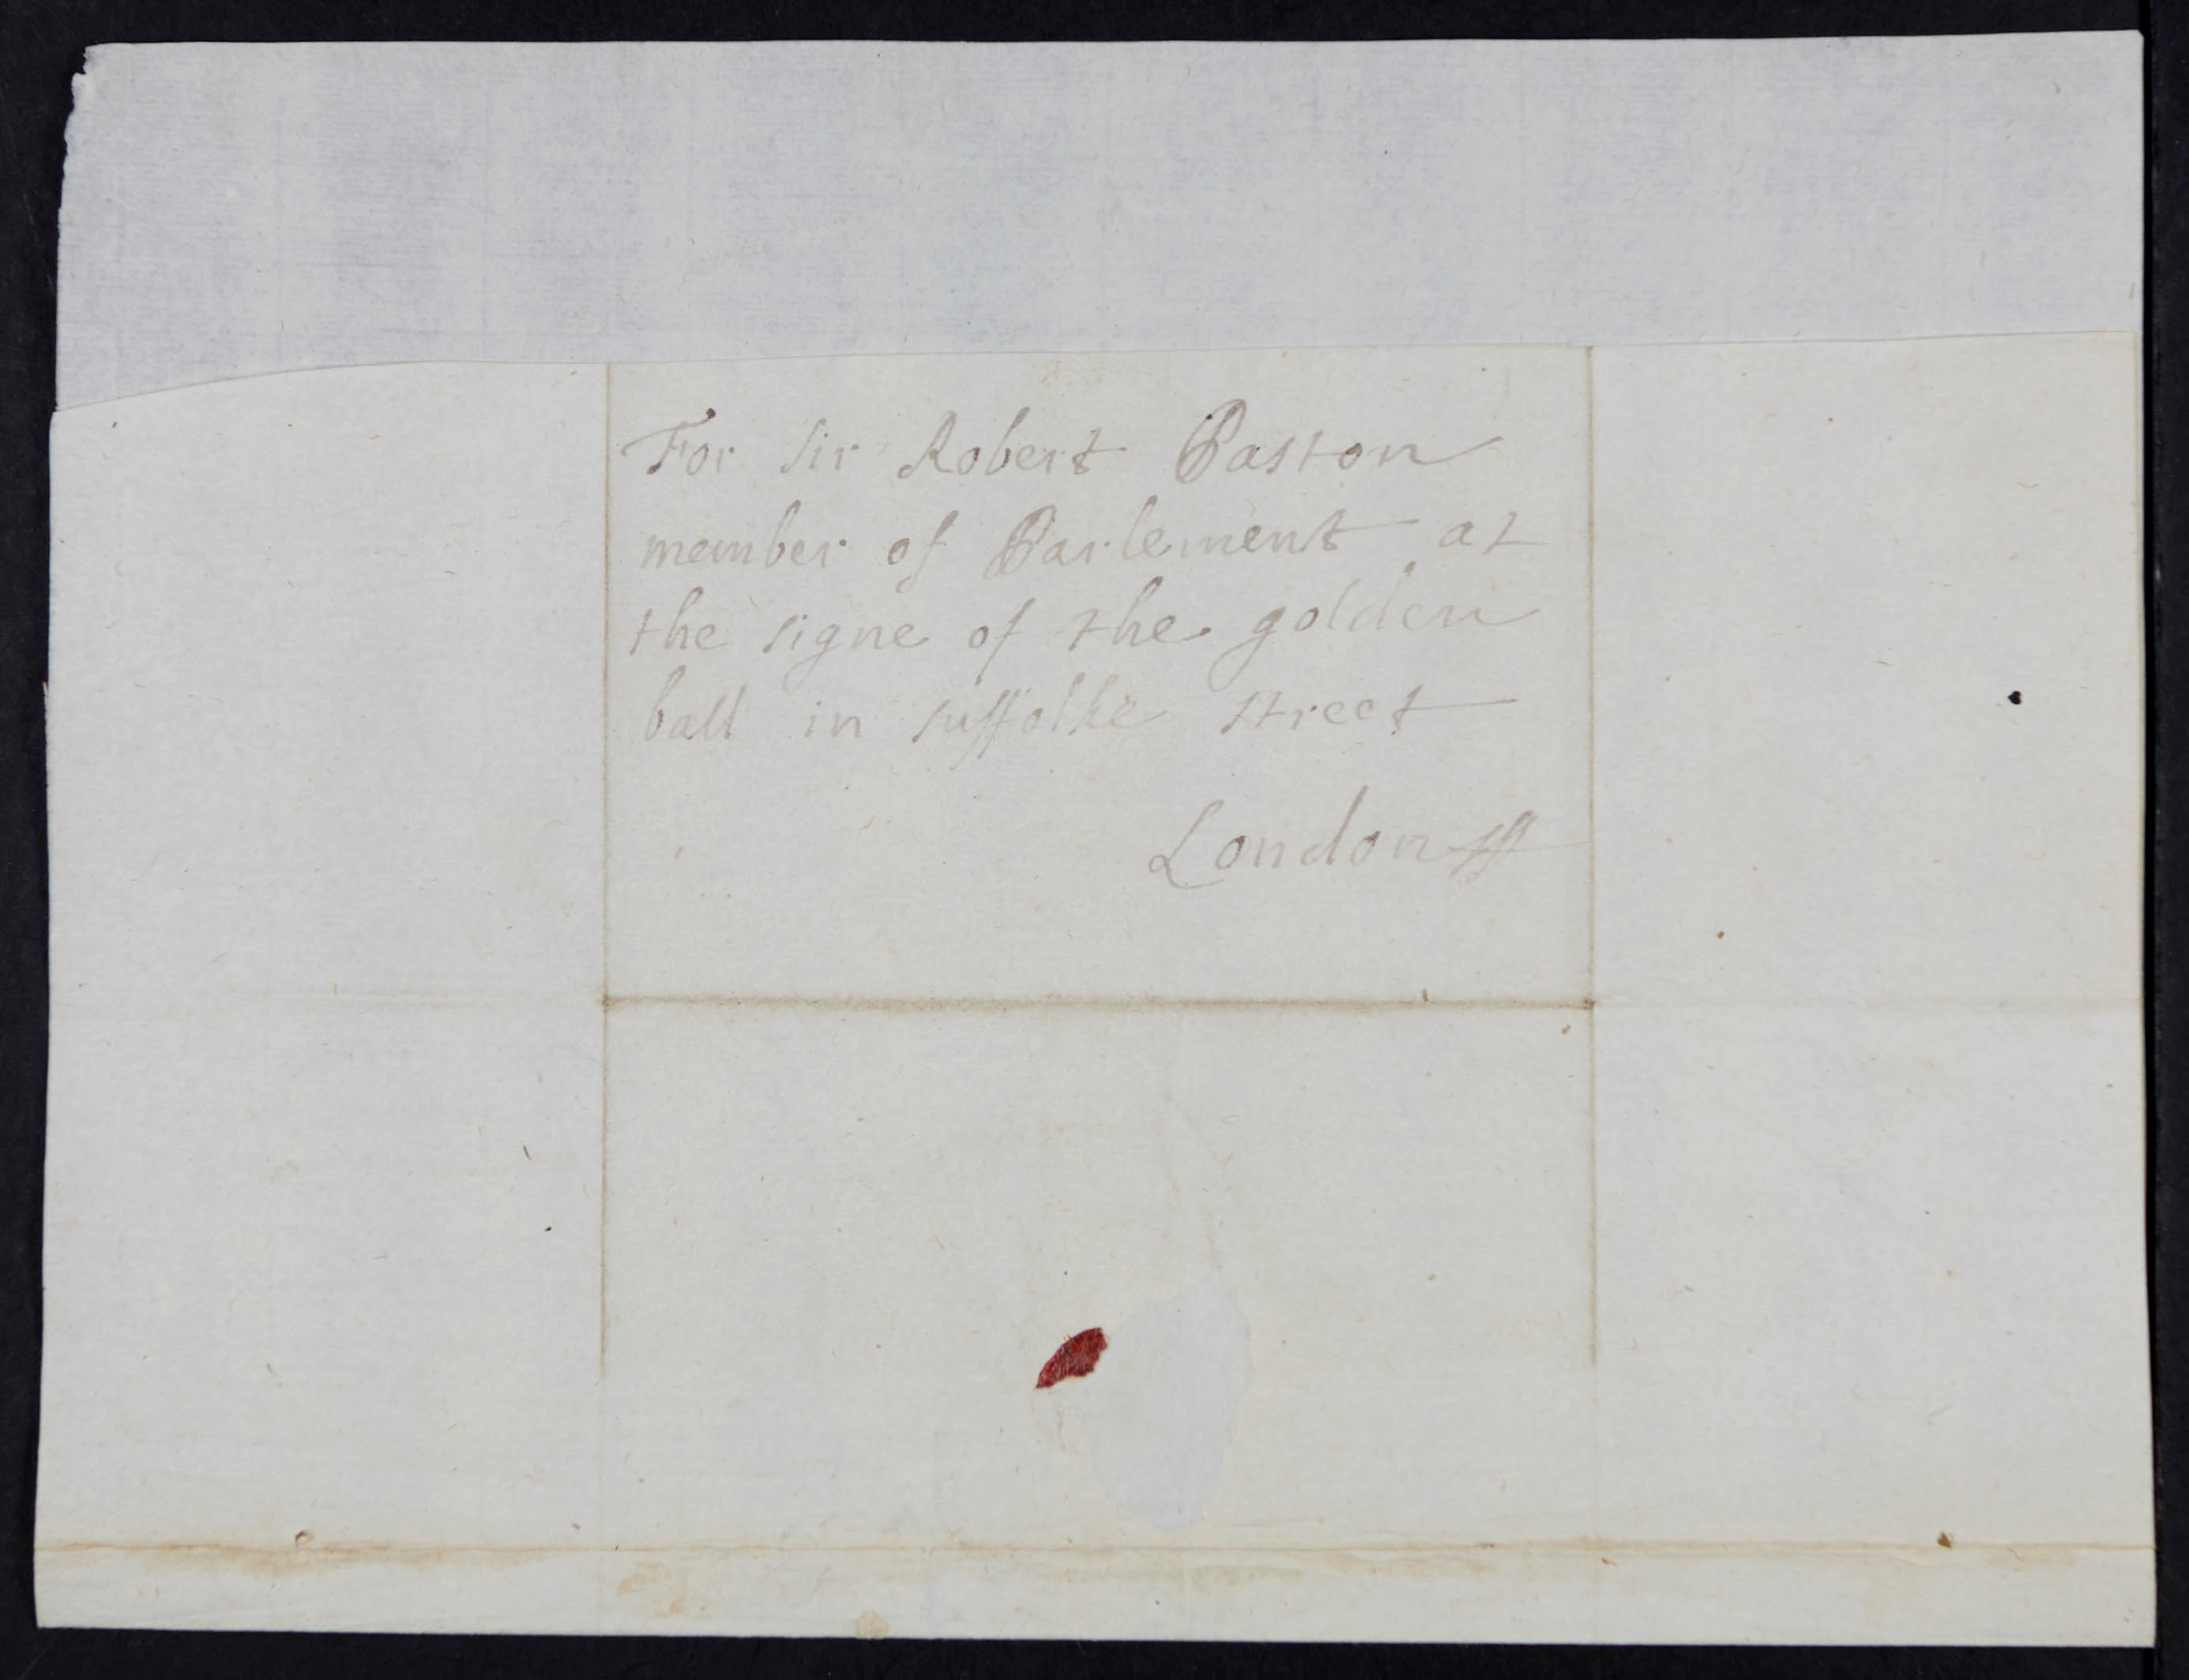 For Sir Robert Paston
member of Parlement at
the signe of the golden
ball in suffolke street
London